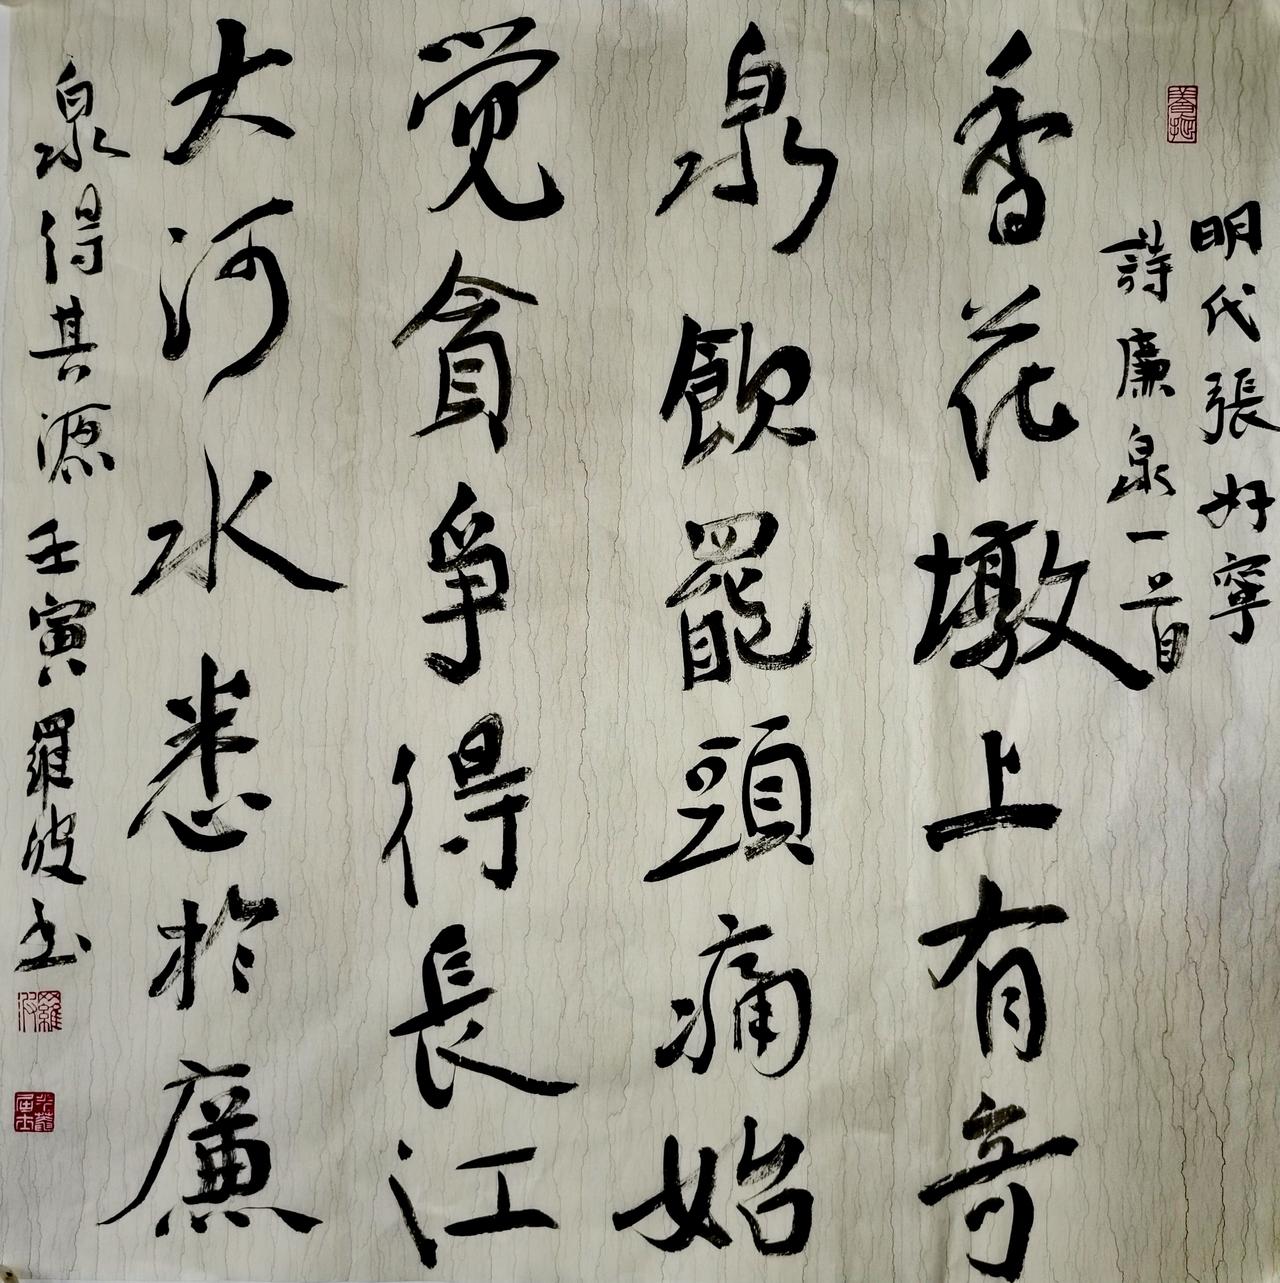 明代張好寧
詩廉泉一首
香花墩上有奇
泉飲罷頭痛始
觉貪爭得長江
大河水悉於廉
泉得其源壬寅羅波书
羅波